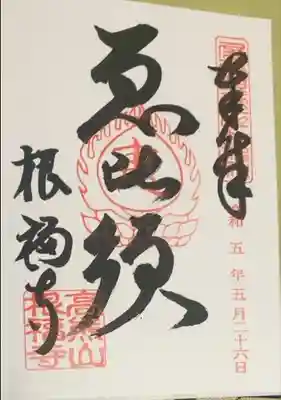 奉拝
令和五年五月二十六日
恵比須
根福寺
高 山
根福寺